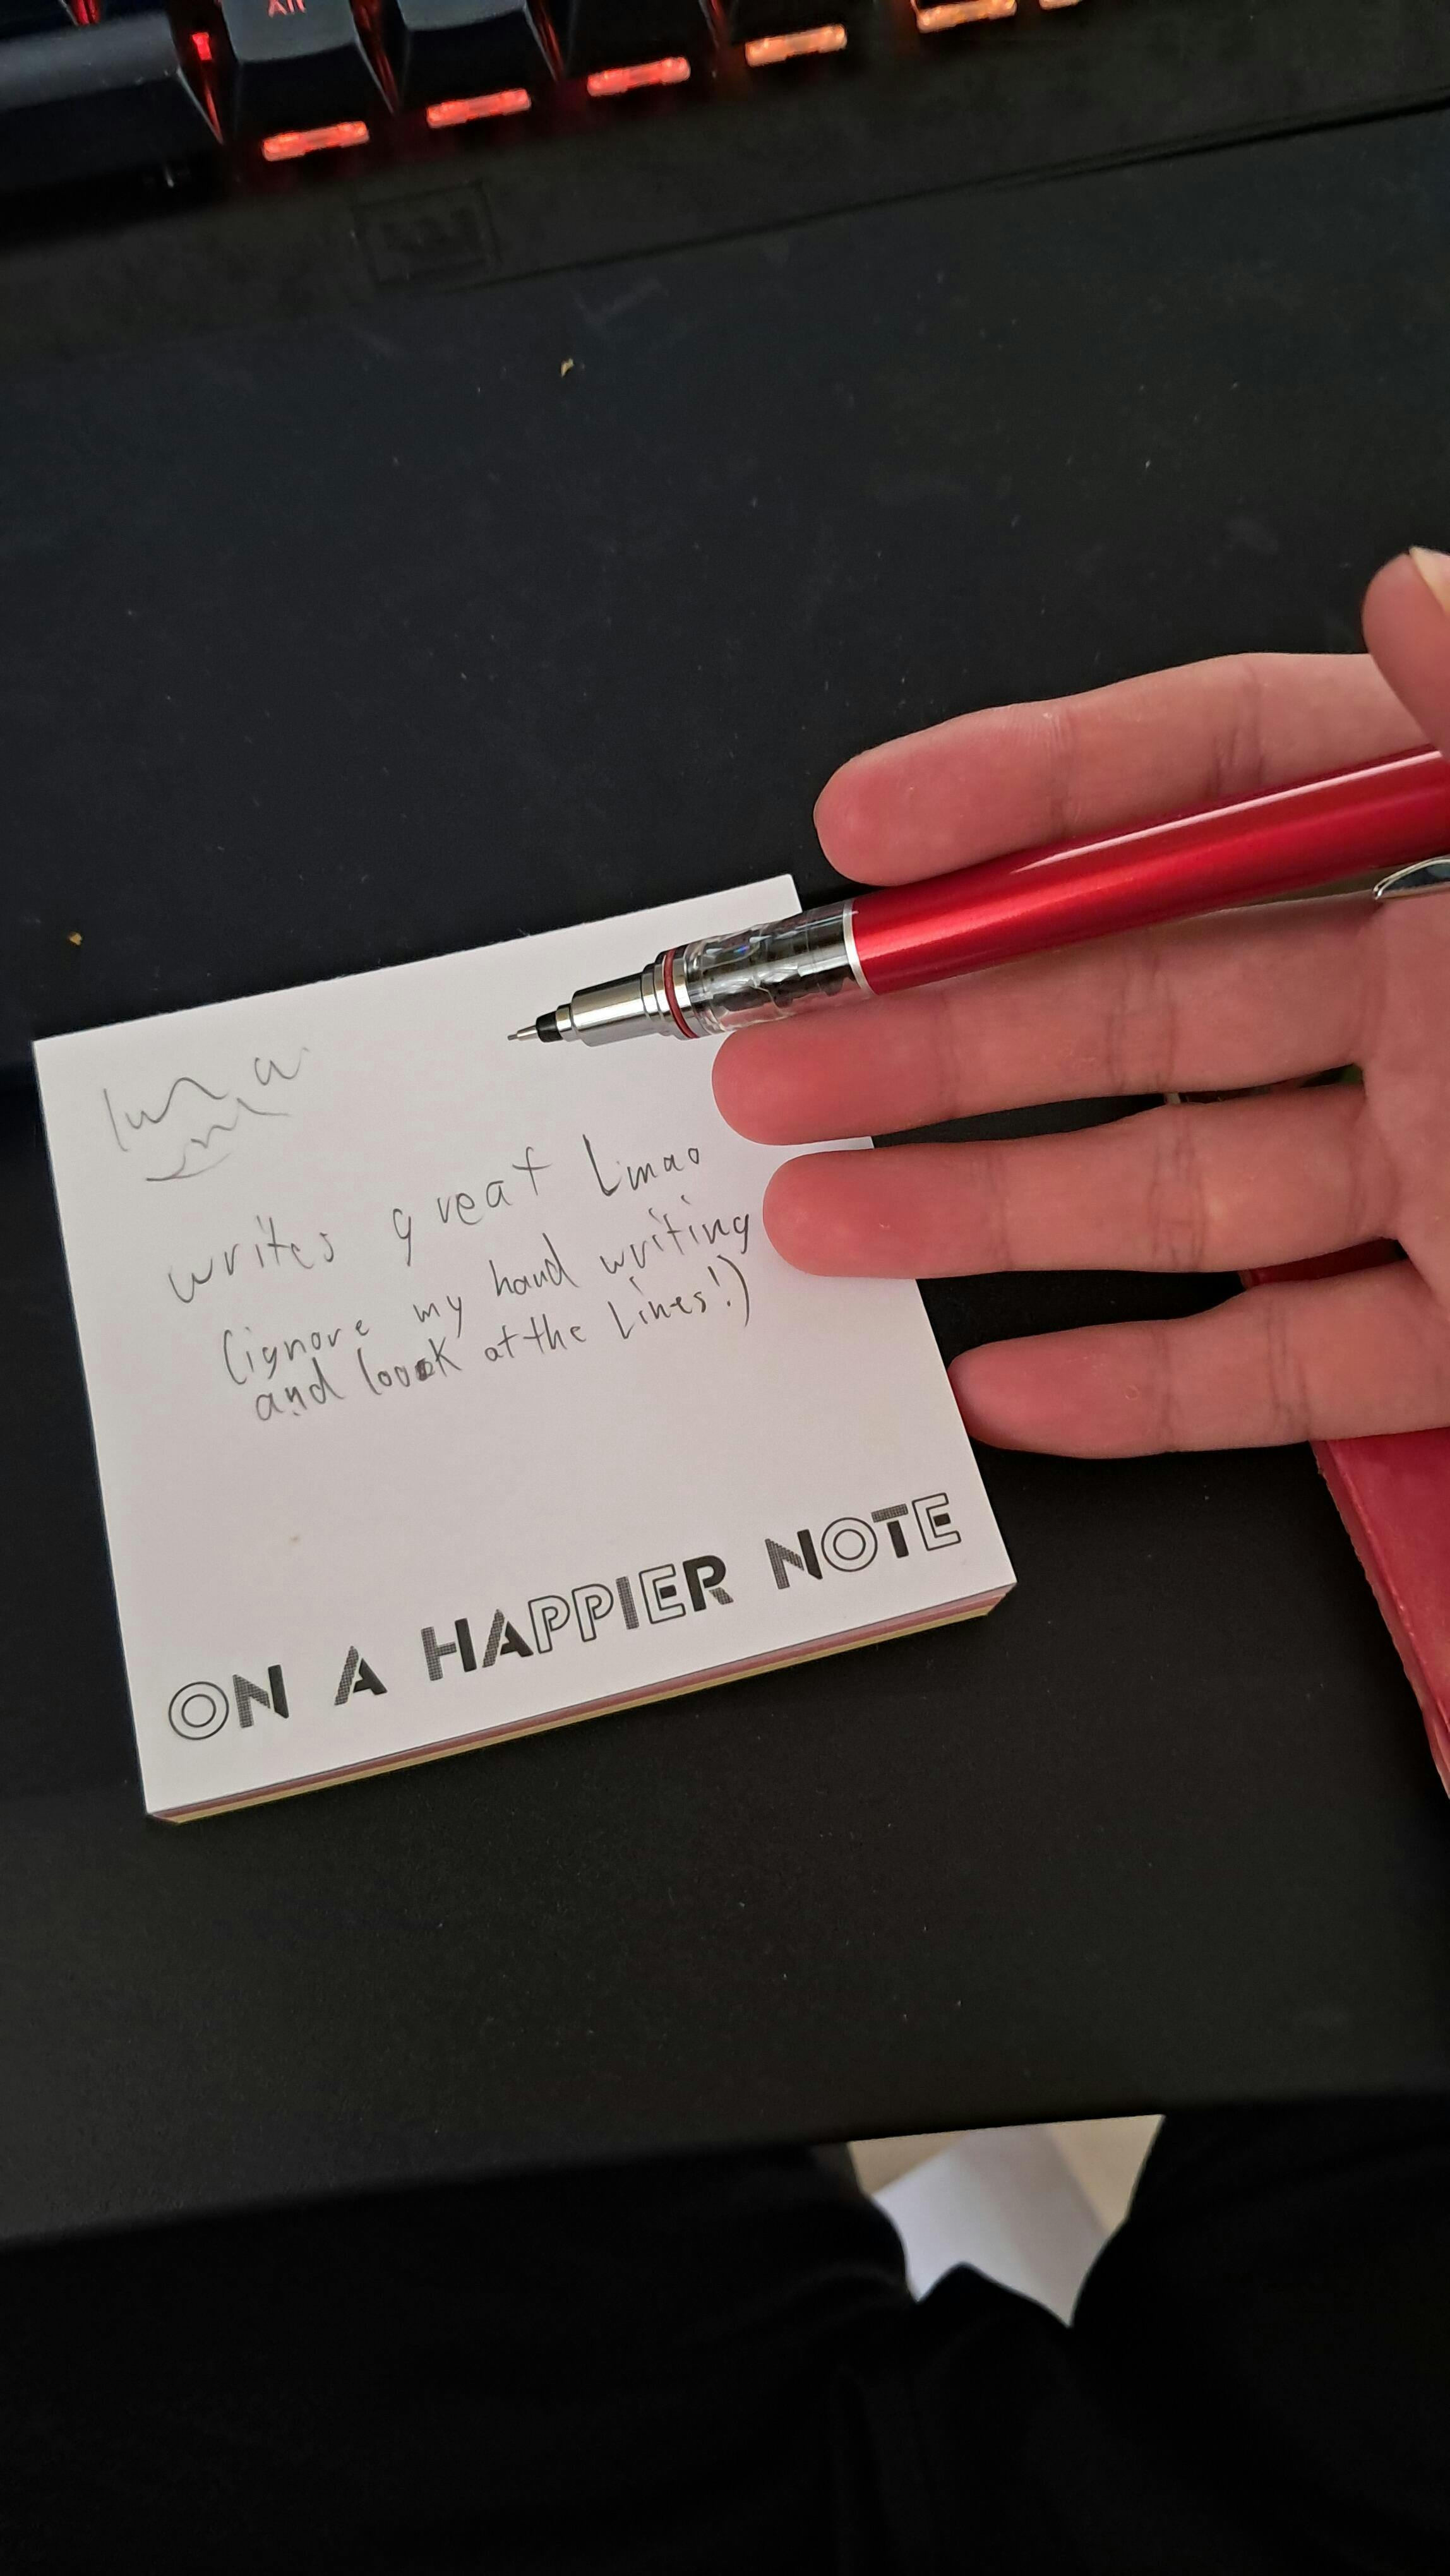 Alt
writes great Lmao
(ignore my hand writing
and look at the Lines!)
ON A HAPPIER NOTE